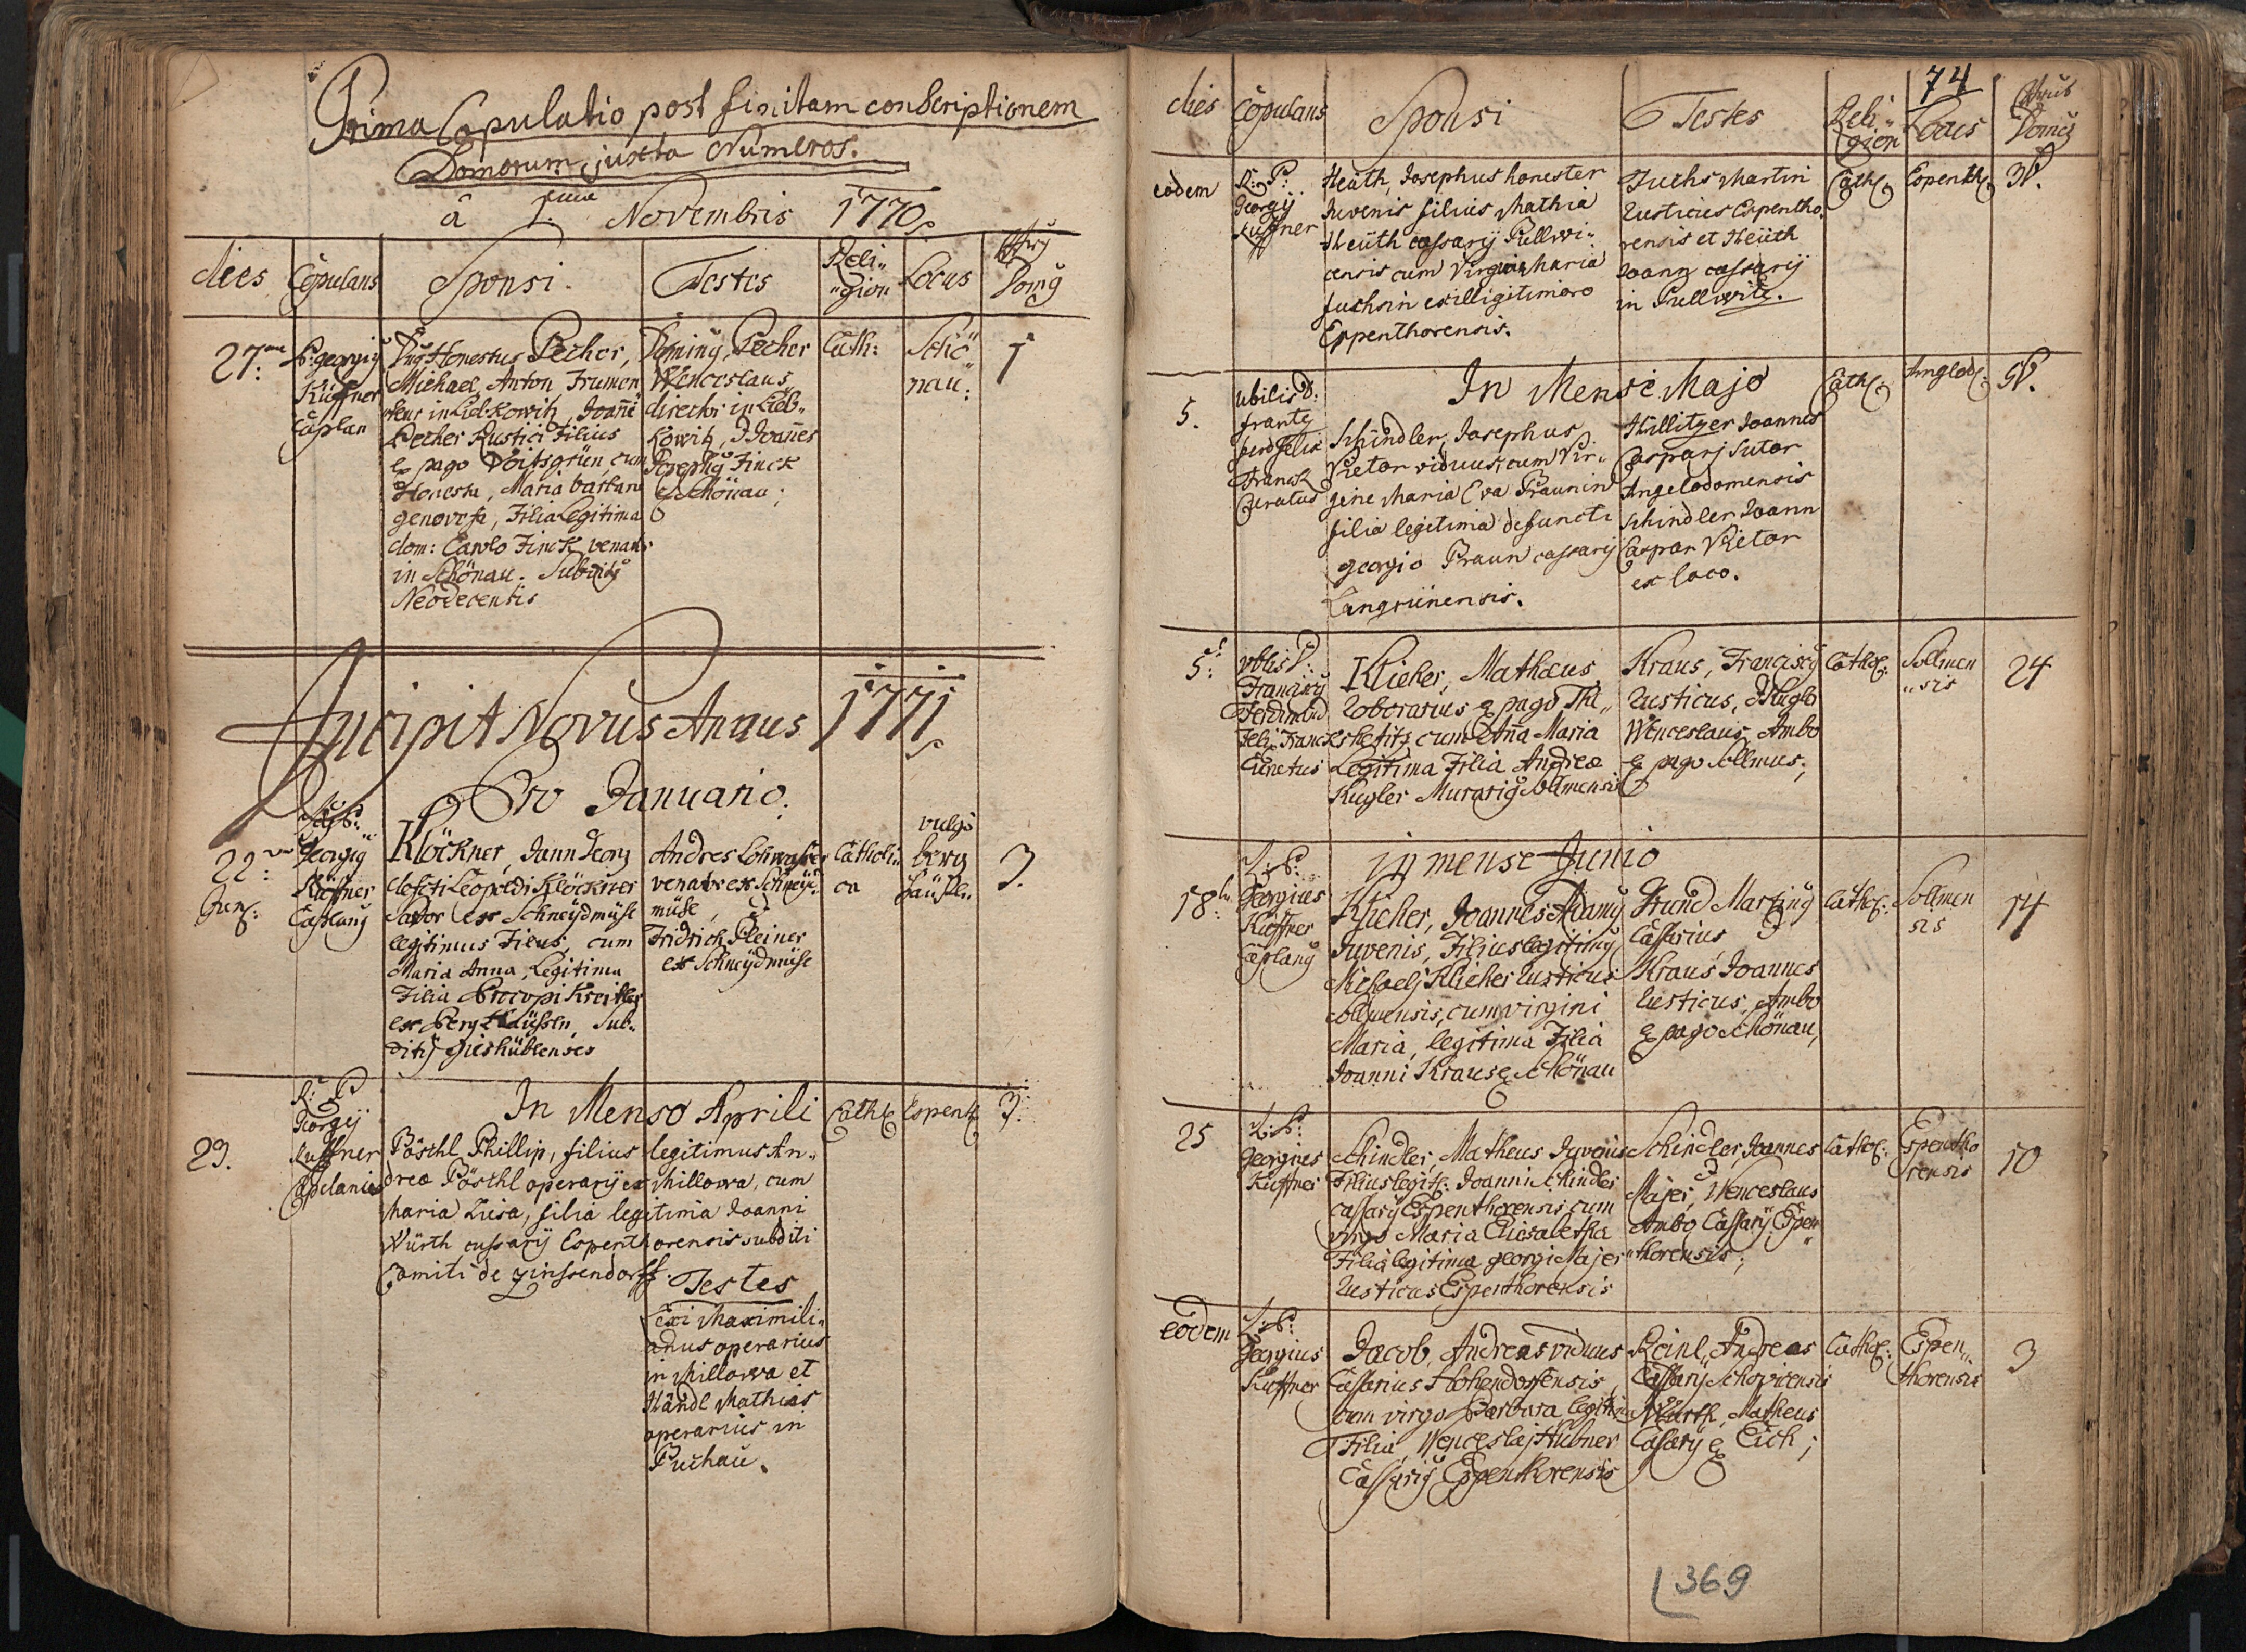 Prima Copulatio post finitam conscriptionem
Domorum juxta Numeros.
â 1. Novembris 1770
dies Copulans Sponsi. Testes Reli- Locus
gion Domg
27: P: georgig
Küffner
Caplan
Honestus Pecher,
Michael, Anton, Frumen
in Liebkowitz, Joañi
Pecher Rustici Filius
pago Voitsgrün, cum
Honesta, Maria barbara
genovefa, Filia Legitima
dom: Carolo Finck venator
in Schönau. Subditg
Neodecentis
Pecher
Wenceslaus
director in Lieb-
kowitz, Joañes
Josephg Finck
Schönau;
Cath:
Schö
nau:
1
Incipit Novus Annus 1771
Pro Januario.
22:
Jan:
Georgig
Küffner
Caplang
Klöckner, Jann Georg
defcti Leopoldi Klöckner
Sartor ex Schneydmühl
legitimus Filius, cum
Maria Anna, Legitima
Filia Procopi
ex Berg Häußen, Sub-
ditg gieshüblenses
Andres Lohwasser
venator ex Schneyd-
mühl,
Fridrich Pleiner
ex Schneydmühl
Catholi-
ca
vulgò
berg
häußen
3.
29.
R: P
Georgij
Kuffner
Capelanus
In Menso Aprili
Pöschl Phillip, filius legitimus An-
dreæ Pöschl operarij ex Millowa, cum
Maria Liesa, filia legitima Joanni
Würth cassarij Espenthorensis subditi
Comiti de zinssendorff.
Testes
Maximili-
anus operarius
in Millowa et
Händl Mathias
operarius in
Puchau.
Cath Espenth 3.
74
dies Copulans Sponsi Testes Reli- Locus
gion Domg
eodem
R: P:
Georgij
Kuffner
Heüth, Josephus honester
Juvenis filius Mathia
Heüth cassarij Pullwi-
censis cum Virgine Maria
fuchsin ex illigitimoro
Espenthorensis.
Fuchs Martin
Rusticus Espentho-
rensis et Heüth
Joann cassarij
in Pullwitz.
Cath Espenth
5.
D:
frantz
ferd felix
Franck
Curatus
In Mense Majo
Schindler, Josephus
Vietor viduus, cum Vir-
gine Maria Eva Praunin
filia legitima defuncti
georgio Praun cassarij
Langrünensis.
Hillitzer Joannes
Casparj Sutor
Angelodomensis
Schindler Joann
Caspar Vietor
ex loco.
Cath Anglod
5: P:
Franciscg
Ferdinand
Felix Franck
Curatus
Klieher, Mathæus
Roborarius pago The-
cum Aña Maria
Legitima Filia Andreæ
Kugler Murarig Sollmensis
Kraus, Franciscg
Rusticus, Kugler
Wenceslaus, Ambo
pago Sollmus;
Cathol: Sollmen
sis
24
18:
Georgius
Küffner
Caplang
in mense Junio
Klieher, Joannes Adamg
Juvenis, Filius legitimg
Michaelj Klieher Rusticus
Sollmensis, cum virgini
Maria, legitima Filia
Joanni Kraus Schönau
Grund Marting
Cassarius
Kraus Joannes
Rusticus, Ambo
pago Schönau,
Cathol: Sollmen
sis
14
25
Georgius
Küffner
Schindler, Matheus Juvenis
Filius legit: Joanni Schindler
cassarij Espenthorensis, cum
virgo Maria Elisabetha
Filia legitima georgi Majer
Rusticus Espenthorensis
Schindler, Joannes
Majer, Wenceslaus
Ambo Cassarij, Espen-
thorensis;
Cathol: Espentho
rensis
10
eodem
Georgius
Küffner
Jacob, Andreas viduus
Cassarius Hohendorfensis,
cum virgo Barbara legitima
Filia, Wenceslaj Hübner
Cassarij Espenthorensis
Reinl, Andreas
Cassarij
Würth, Matheus
Cassarij Eich;
Cathol: Espen-
thorensis
3
369